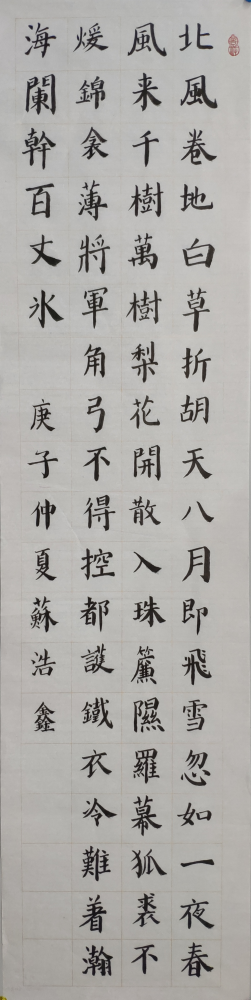 北風卷地白草折胡天八月即飛雪忽如一夜春
風来千樹萬樹梨花開散入珠簾濕羅幕狐裘不
煖錦衾薄將軍角弓不得控都護鐵衣冷難着瀚
海闌幹百丈氷
庚子仲夏蘇浩鑫